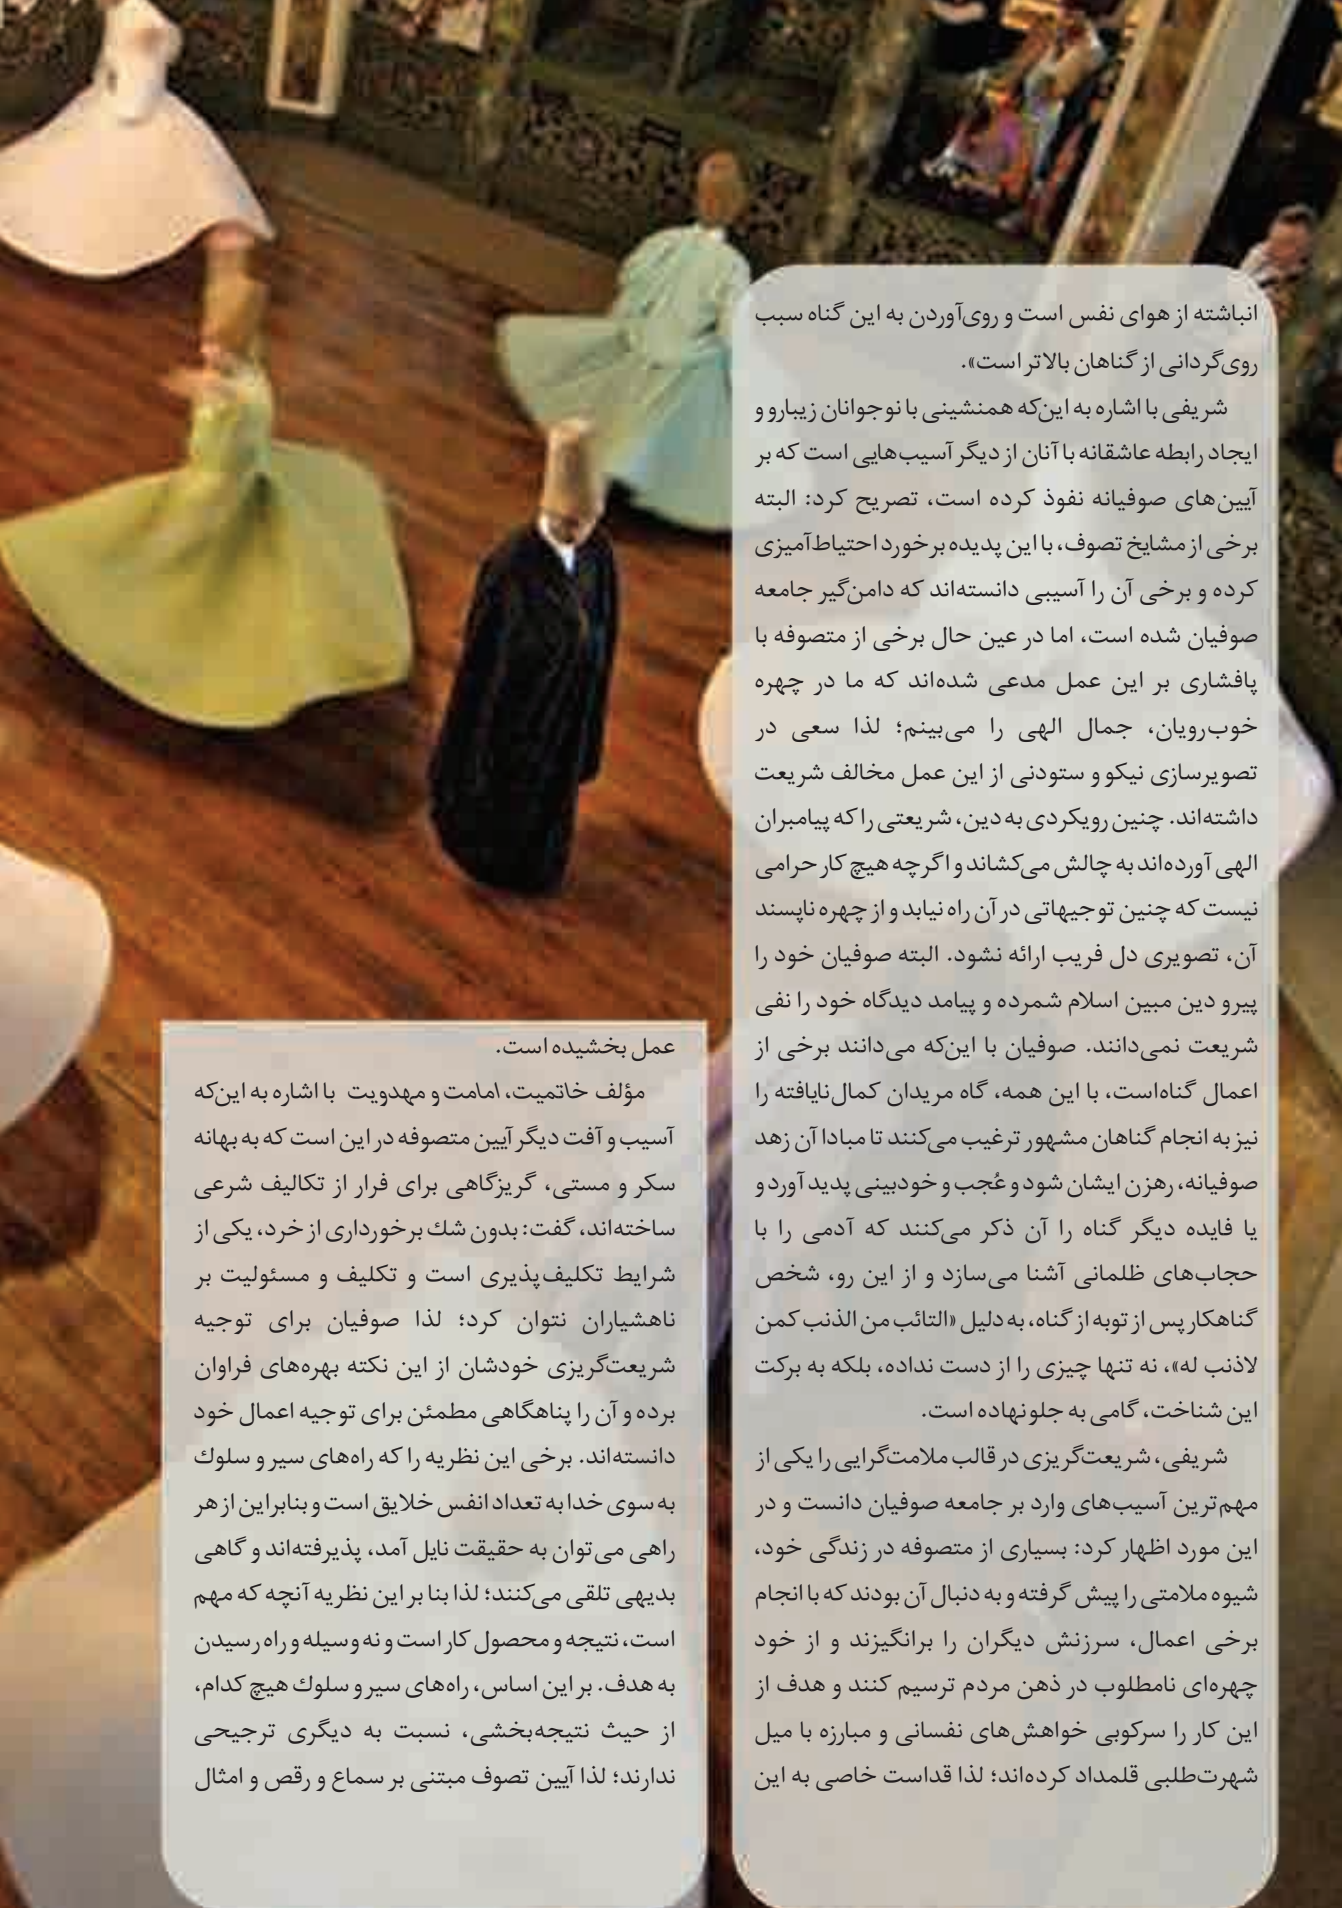 انباشته از هوای نفس است و روی‌آوردن به این گناه سبب
روی‌گردانی از گناهان بالاتر است».
شریفی با اشاره به این‌که همنشینی با نوجوانان زیبارو و
ایجاد رابطه عاشقانه با آنان از دیگر آسیب‌هایی است که بر
آیین‌های صوفیانه نفوذ کرده است، تصریح کرد: البته
برخی از مشایخ تصوف، با این پدیده برخورد احتیاط‌آمیزی
کرده و برخی آن را آسیبی دانسته‌اند که دامن‌گیر جامعه
صوفیان شده است، اما در عین حال برخی از متصوفه با
پافشاری بر این عمل مدعی شده‌اند که ما در چهره
خوب‌رویان، جمال الهی را می‌بینم؛ لذا سعی در
تصویرسازی نیکو و ستودنی از این عمل مخالف شریعت
داشته‌اند. چنین رویکردی به دین، شریعتی را که پیامبران
الهی آورده‌اند به چالش می‌کشاند و اگر چه هیچ کار حرامی
نیست که چنین توجیهاتی در آن راه نیابد و از چهره ناپسند
آن، تصویری دل فریب ارائه نشود. البته صوفیان خود را
پیرو دین مبین اسلام شمرده و پیامد دیدگاه خود را نفی
شریعت نمی‌دانند. صوفیان با این‌که می‌دانند برخی از
اعمال گناه‌است، با این همه، گاه مریدان کمال‌نایافته را
نیز به انجام گناهان مشهور ترغیب می‌کنند تا مبادا آن زهد
صوفیانه، رهزن ایشان شود و عُجب و خودبینی پدید آورد و
یا فایده دیگر گناه را آن ذکر می‌کنند که آدمی را با
حجاب‌های ظلمانی آشنا می‌سازد و از این رو، شخص
گناهکار پس از توبه از گناه، به دلیل «التائب من الذنب کمن
لاذنب له»، نه تنها چیزی را از دست نداده، بلکه به برکت
این شناخت، گامی به جلو نهاده است.
شریفی، شریعت‌گریزی در قالب ملامت‌گرایی را یکی از
مهم‌ترین آسیب‌های وارد بر جامعه صوفیان دانست و در
این مورد اظهار کرد: بسیاری از متصوفه در زندگی خود،
شیوه ملامتی را پیش گرفته و به دنبال آن بودند که با انجام
برخی اعمال، سرزنش دیگران را برانگیزند و از خود
چهره‌ای نامطلوب در ذهن مردم ترسیم کنند و هدف از
این کار را سرکوبی خواهش‌های نفسانی و مبارزه با میل
شهرت‌طلبی قلمداد کرده‌اند؛ لذا قداست خاصی به این
عمل بخشیده است.
مؤلف خاتمیت، امامت و مهدویت با اشاره به این‌که
آسیب و آفت دیگر آیین متصوفه در این است که به بهانه
سکر و مستی، گریزگاهی برای فرار از تکالیف شرعی
ساخته‌اند، گفت: بدون شك برخورداری از خرد، یکی از
شرایط تکلیف‌پذیری است و تکلیف و مسئولیت بر
ناهشیاران نتوان کرد؛ لذا صوفیان برای توجیه
شریعت‌گریزی خودشان از این نکته بهره‌های فراوان
برده و آن را پناهگاهی مطمئن برای توجیه اعمال خود
دانسته‌اند. برخی این نظریه را که راه‌های سیر و سلوك
به سوی خدا به تعداد انفس خلایق است و بنابراین از هر
راهی می‌توان به حقیقت نایل آمد، پذیرفته‌اند و گاهی
بدیهی تلقی می‌کنند؛ لذا بنا بر این نظریه آنچه که مهم
است، نتیجه و محصول کار است و نه وسیله و راه رسیدن
به هدف. بر این اساس، راه‌های سیر و سلوك هیچ کدام،
از حیث نتیجه‌بخشی، نسبت به دیگری ترجیحی
ندارند؛ لذا آیین تصوف مبتنی بر سماع و رقص و امثال